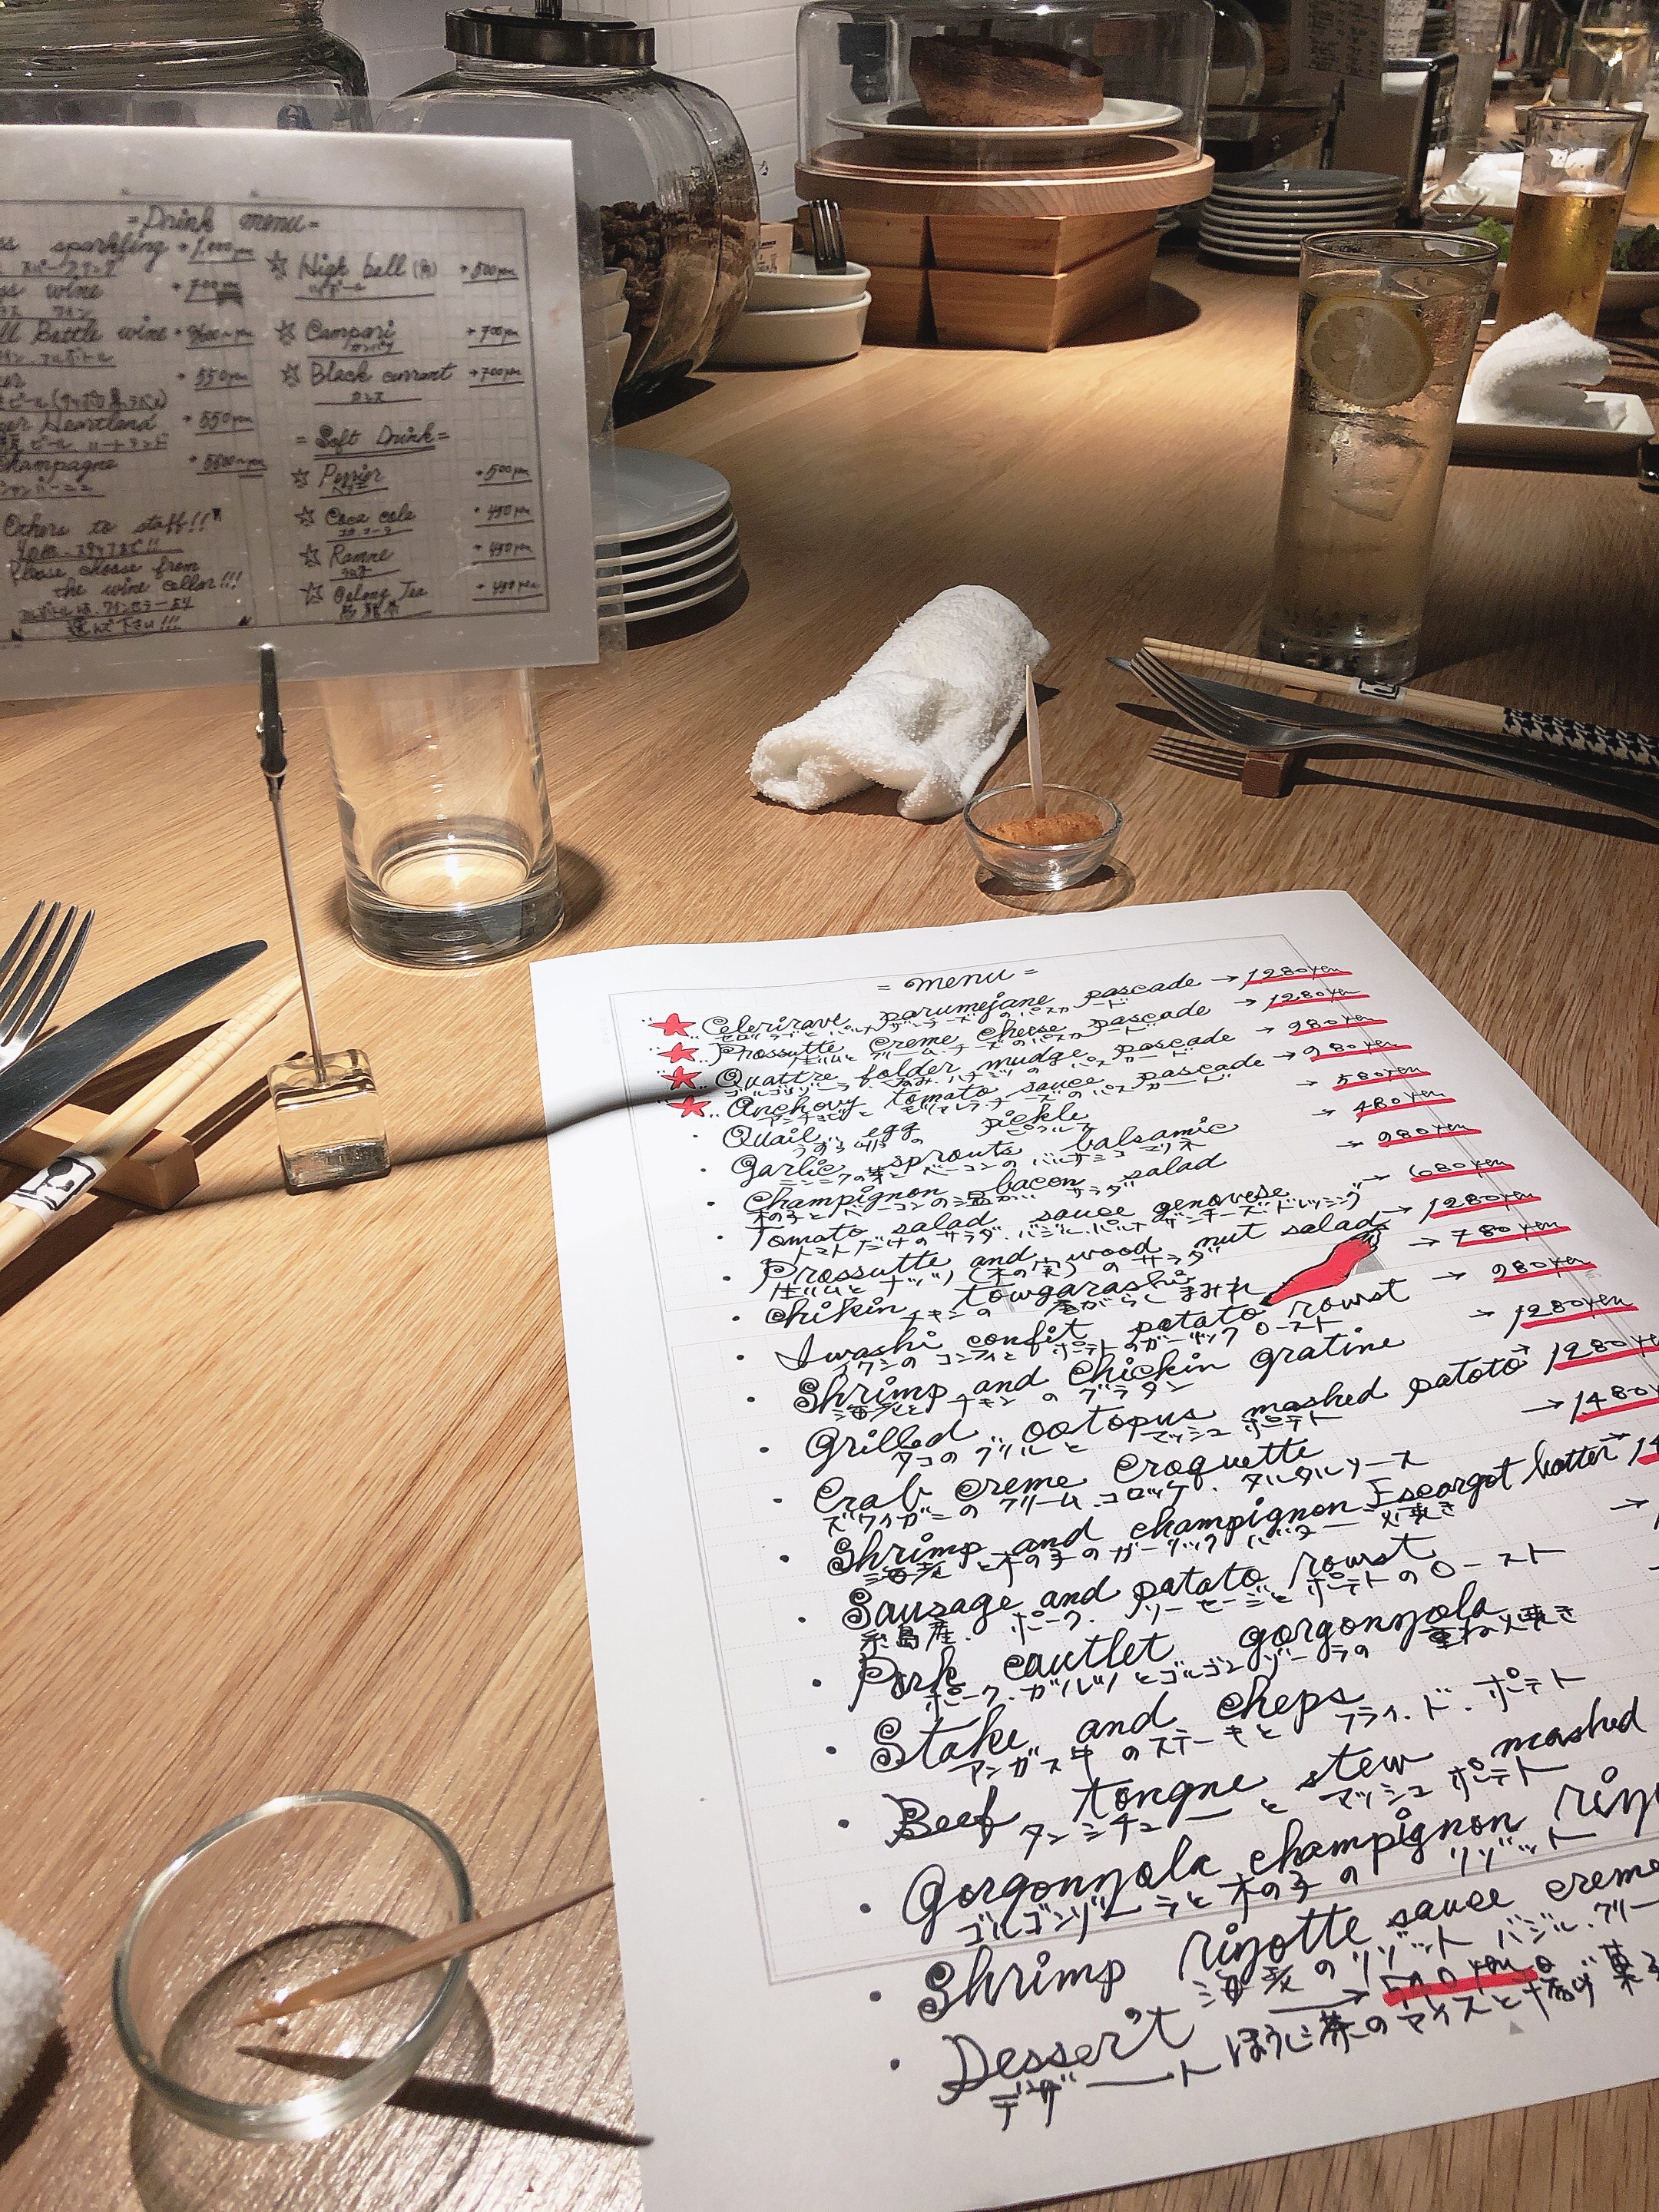 =Drink menu=
sparkling 1,000yen
スパークリング
wine 700yen
ワイン
Bottle wine
550yen
Heartland 550yen
ハートランド
Champagne
Others to staff!!
Please choose from
the wine cellar!!!
選んで下さい!!!
☆ High ball (角) 500yen
ハイボール
☆ Campari 700yen
カンパリ
☆ Black currant 700yen
カシス
=Soft Drink=
☆ 500yen
☆ Coca cola 450yen
コカ・コーラ
☆ Ramne 450yen
ラムネ
☆ Oolong Tea 450yen
烏龍茶
= menu =
★ Celerirave parumejane pascade → 1280yen
★ Prossutte creme cheese pascade → 1280yen
生ハムとクリームチーズのパスカード
★ Quattre folder mudge pascade → 980yen
★ Anchovy tomato sauce pascade → 980yen
アンチョビとモッツァレラチーズのパスカード
・ Quail egg pickle → 580yen
うずら卵のピクルス
・ Garlic sprouts balsamic → 480yen
ニンニクの芽とベーコンのバルサミコマリネ
・ Champignon bacon salad → 980yen
木の子とベーコンの温かいサラダ
・ Tomato salad sauce genovese → 680yen
トマトだけのサラダ・バジル・パルメザンチーズドレッシング
・ Prossutte and wood nut salad → 1280yen
生ハムとナッツ(木の実)のサラダ
・ Chikin towgarashi → 780yen
チキンの唐がらしまみれ
・ Iwashi confit potato rowst → 980yen
イワシのコンフィとポテトのガーリックロースト
・ Shrimp and chickin gratine → 1280yen
海老とチキンのグラタン
・ Grilled octopus mashed patoto → 1280y
タコのグリルとマッシュポテト
・ Crab creme croquette → 1480y
ズワイガニのクリームコロッケ・タルタルソース
・ Shrimp and champignon Escargot batter → 14
海老と木の子のガーリックバター火焼き
・ Sausage and patato rowst →
糸島産・ポーク・ソーセージとポテトのロースト
・ Pork cautlet gorgonzola
ポーク・カルツとゴルゴンゾーラの重ね火焼き
・ Stake and cheps
アンガス牛のステーキとフライ・ド・ポテト
・ Beef tongne stew mashed
タンシチューとマッシュポテト
・ Gorgonzola champignon rizo
ゴルゴンゾーラと木の子のリゾット
・ Shrimp rizotte sauce creme
海老のリゾットバジル・クリー
・ Dessert → 580yen
デザートほうじ茶のアイスと揚げ菓子